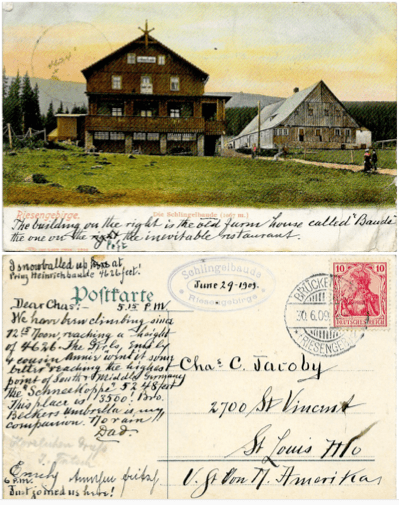 Riesengebirge. Die Schlingelbaude (1067 m.)
The building on the right is the old farm house called "Baude"
the one on the right the inevitable restaurant.
left
I snowballed up here at
Prinz Heinrichbaude 4626 feet.
Postkarte
Schlingelbaude
June 29-1909.
Riesengebirge
Dear Chas: 5.15 P.M
We have been climbing since
12 Noon, reaching a height
of 4626. The Girls, Emil &
cousin Annie went on some
better reaching the highest
point of South & Middle Germany
The "Schneekoppe" 5248 feet
This place is 3500! Bro.
Beckers Umbrella is my
companion. No rain
Dad.
Emily
6 P.M.
Just joined us here!
BRÜCKENBERG
30.6.09
(RIESENGEB.)
10 10
DEUTSCHES REICH
Chas. C. Jacoby
2700 St Vincent
St Louis Mo
V. St Von N. Amerika